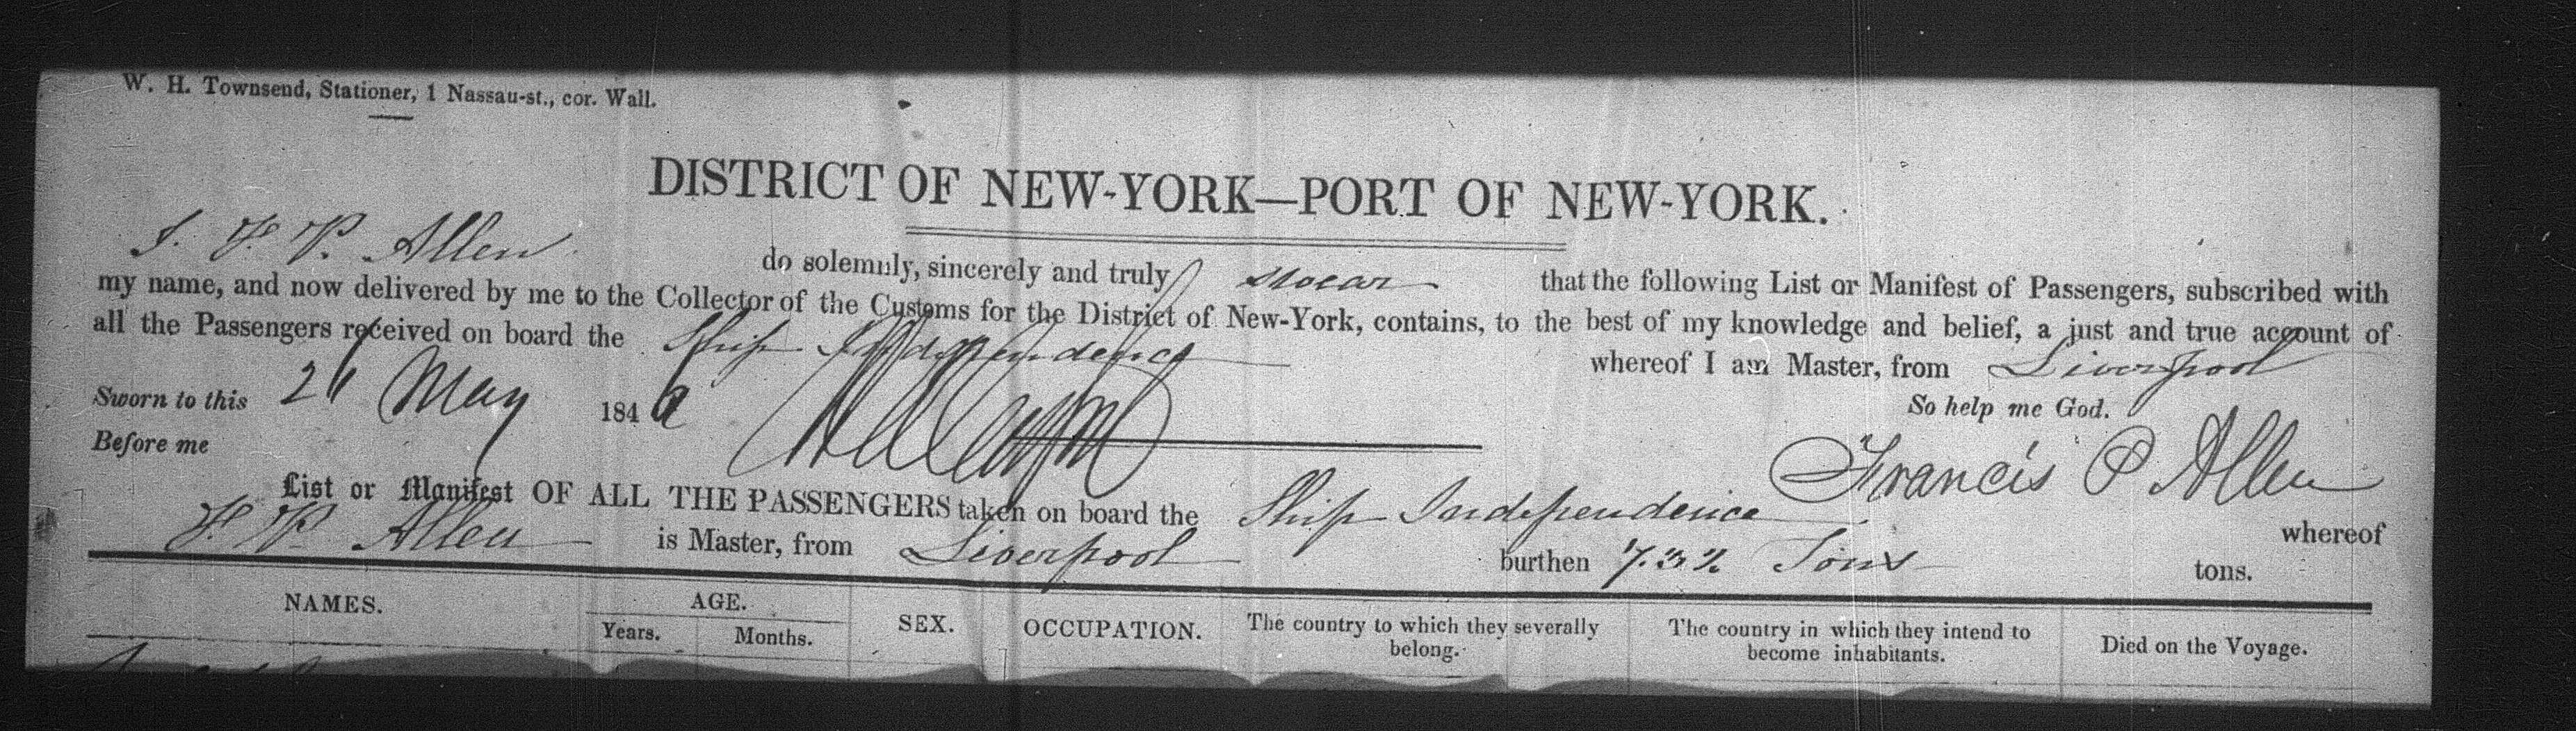 W. H. Townsend, Stationer, 1 Nassau-st., cor. Wall.
DISTRICT OF NEW-YORK—PORT OF NEW-YORK.
I. F. P. Allen do solemnly, sincerely and truly swear that the following List or Manifest of Passengers, subscribed with
my name, and now delivered by me to the Collector of the Customs for the District of New-York, contains, to the best of my knowledge and belief, a just and true account of
all the Passengers received on board the Ship Independence whereof I am Master, from Liverpool
Sworn to this May 184 So help me God.
Before me Francis P Allen
List or Manifest OF ALL THE PASSENGERS taken on board the Ship Independence whereof
F. P. Allen is Master, from Liverpool burthen 732 Tons tons.
NAMES. AGE. SEX. OCCUPATION. The country to which they severally belong. The country in which they intend to become inhabitants. Died on the Voyage.
Years. Months.